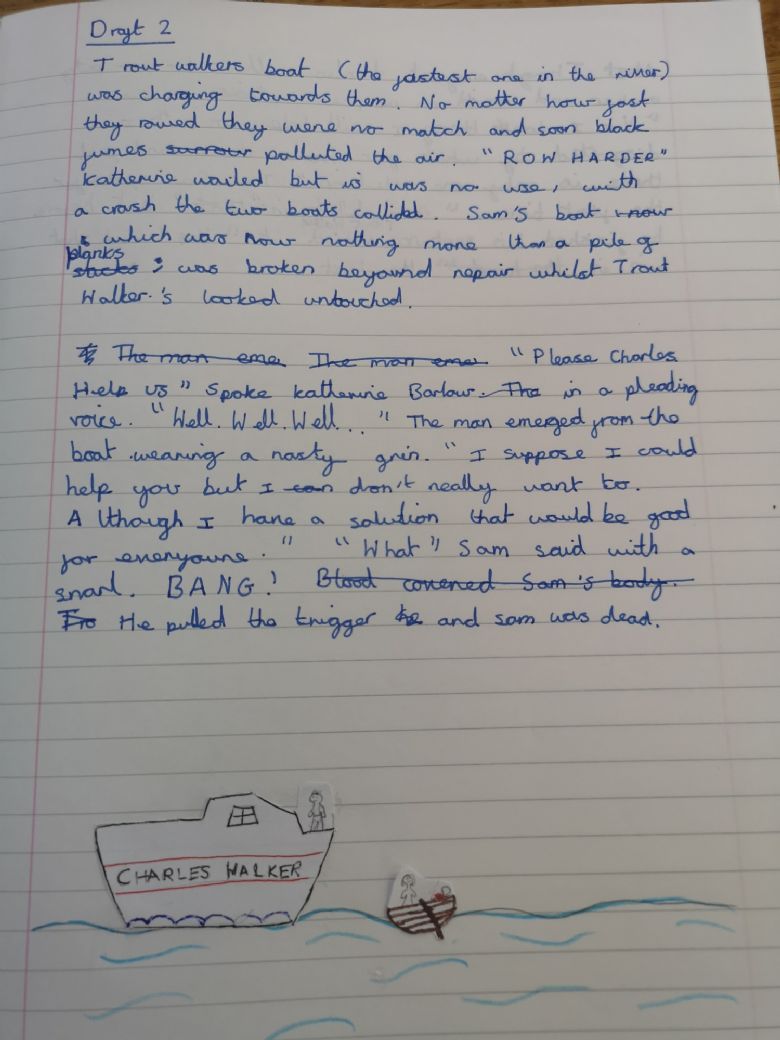 Draft 2
Trout walkers boat (the fastest one in the river)
was charging towards them. No matter how fast
they rowed they were no match and soon black
fumes surrour polluted the air. "ROW HARDER"
Katherine wailed but is was no use, with
a crash the two boats collided. Sam's boat now
which was now nothing more than a pile of
planks
stacks was broken beyound repair whilst Trout
Walker's looked untouched.
The man eme The man eme "Please Charles
Help us" Spoke Katherine Barlow. The in a pleading
voice. "Well. Well. Well..." The man emerged from the
boat wearing a nasty grin. "I suppose I could
help you but I can don't really want to.
Although I have a solution that would be good
for everyoune." "What" Sam said with a
snarl. BANG! Blood covered Sam's body.
He pulled the trigger and sam was dead.
CHARLES WALKER